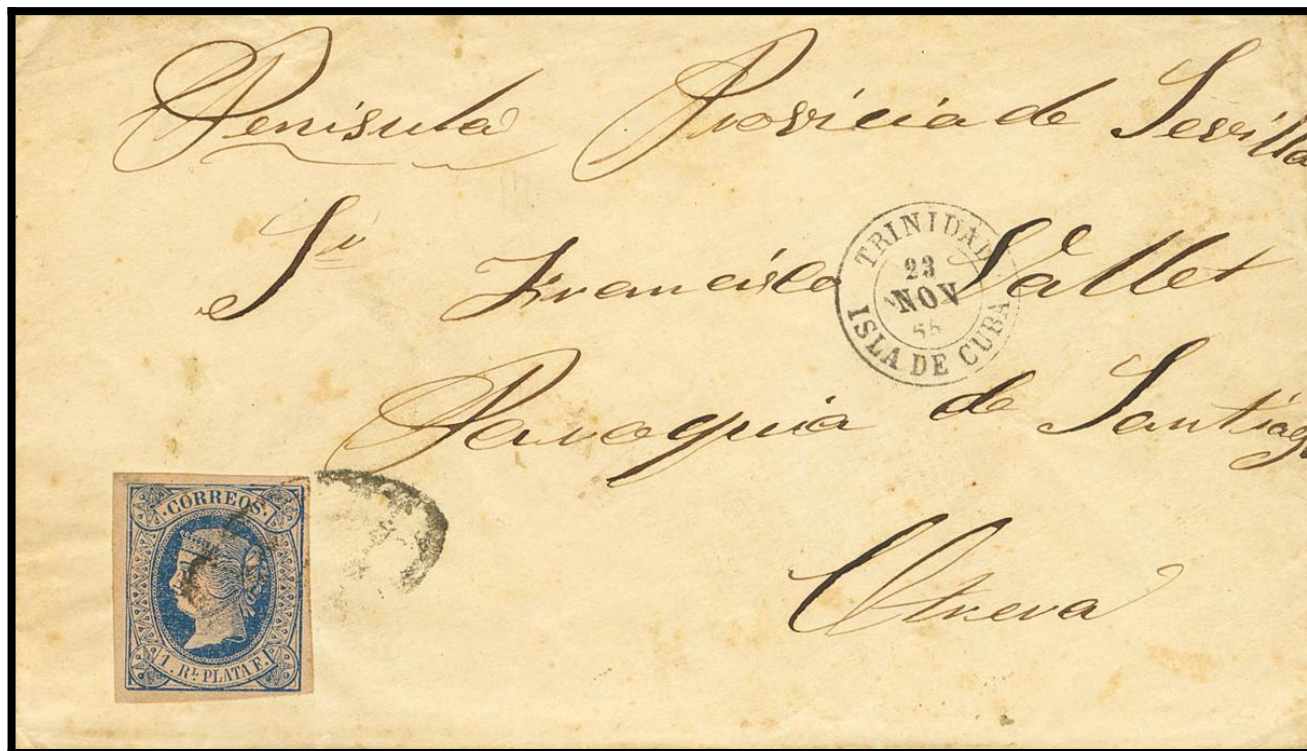 Penisula Provicia de Sevilla
Sr Francisco Vallet
TRINIDAD
23
NOV
ISLA DE CUBA
Paroquia de Santiago
Utrera
CORREOS
1. Rl PLATA F.